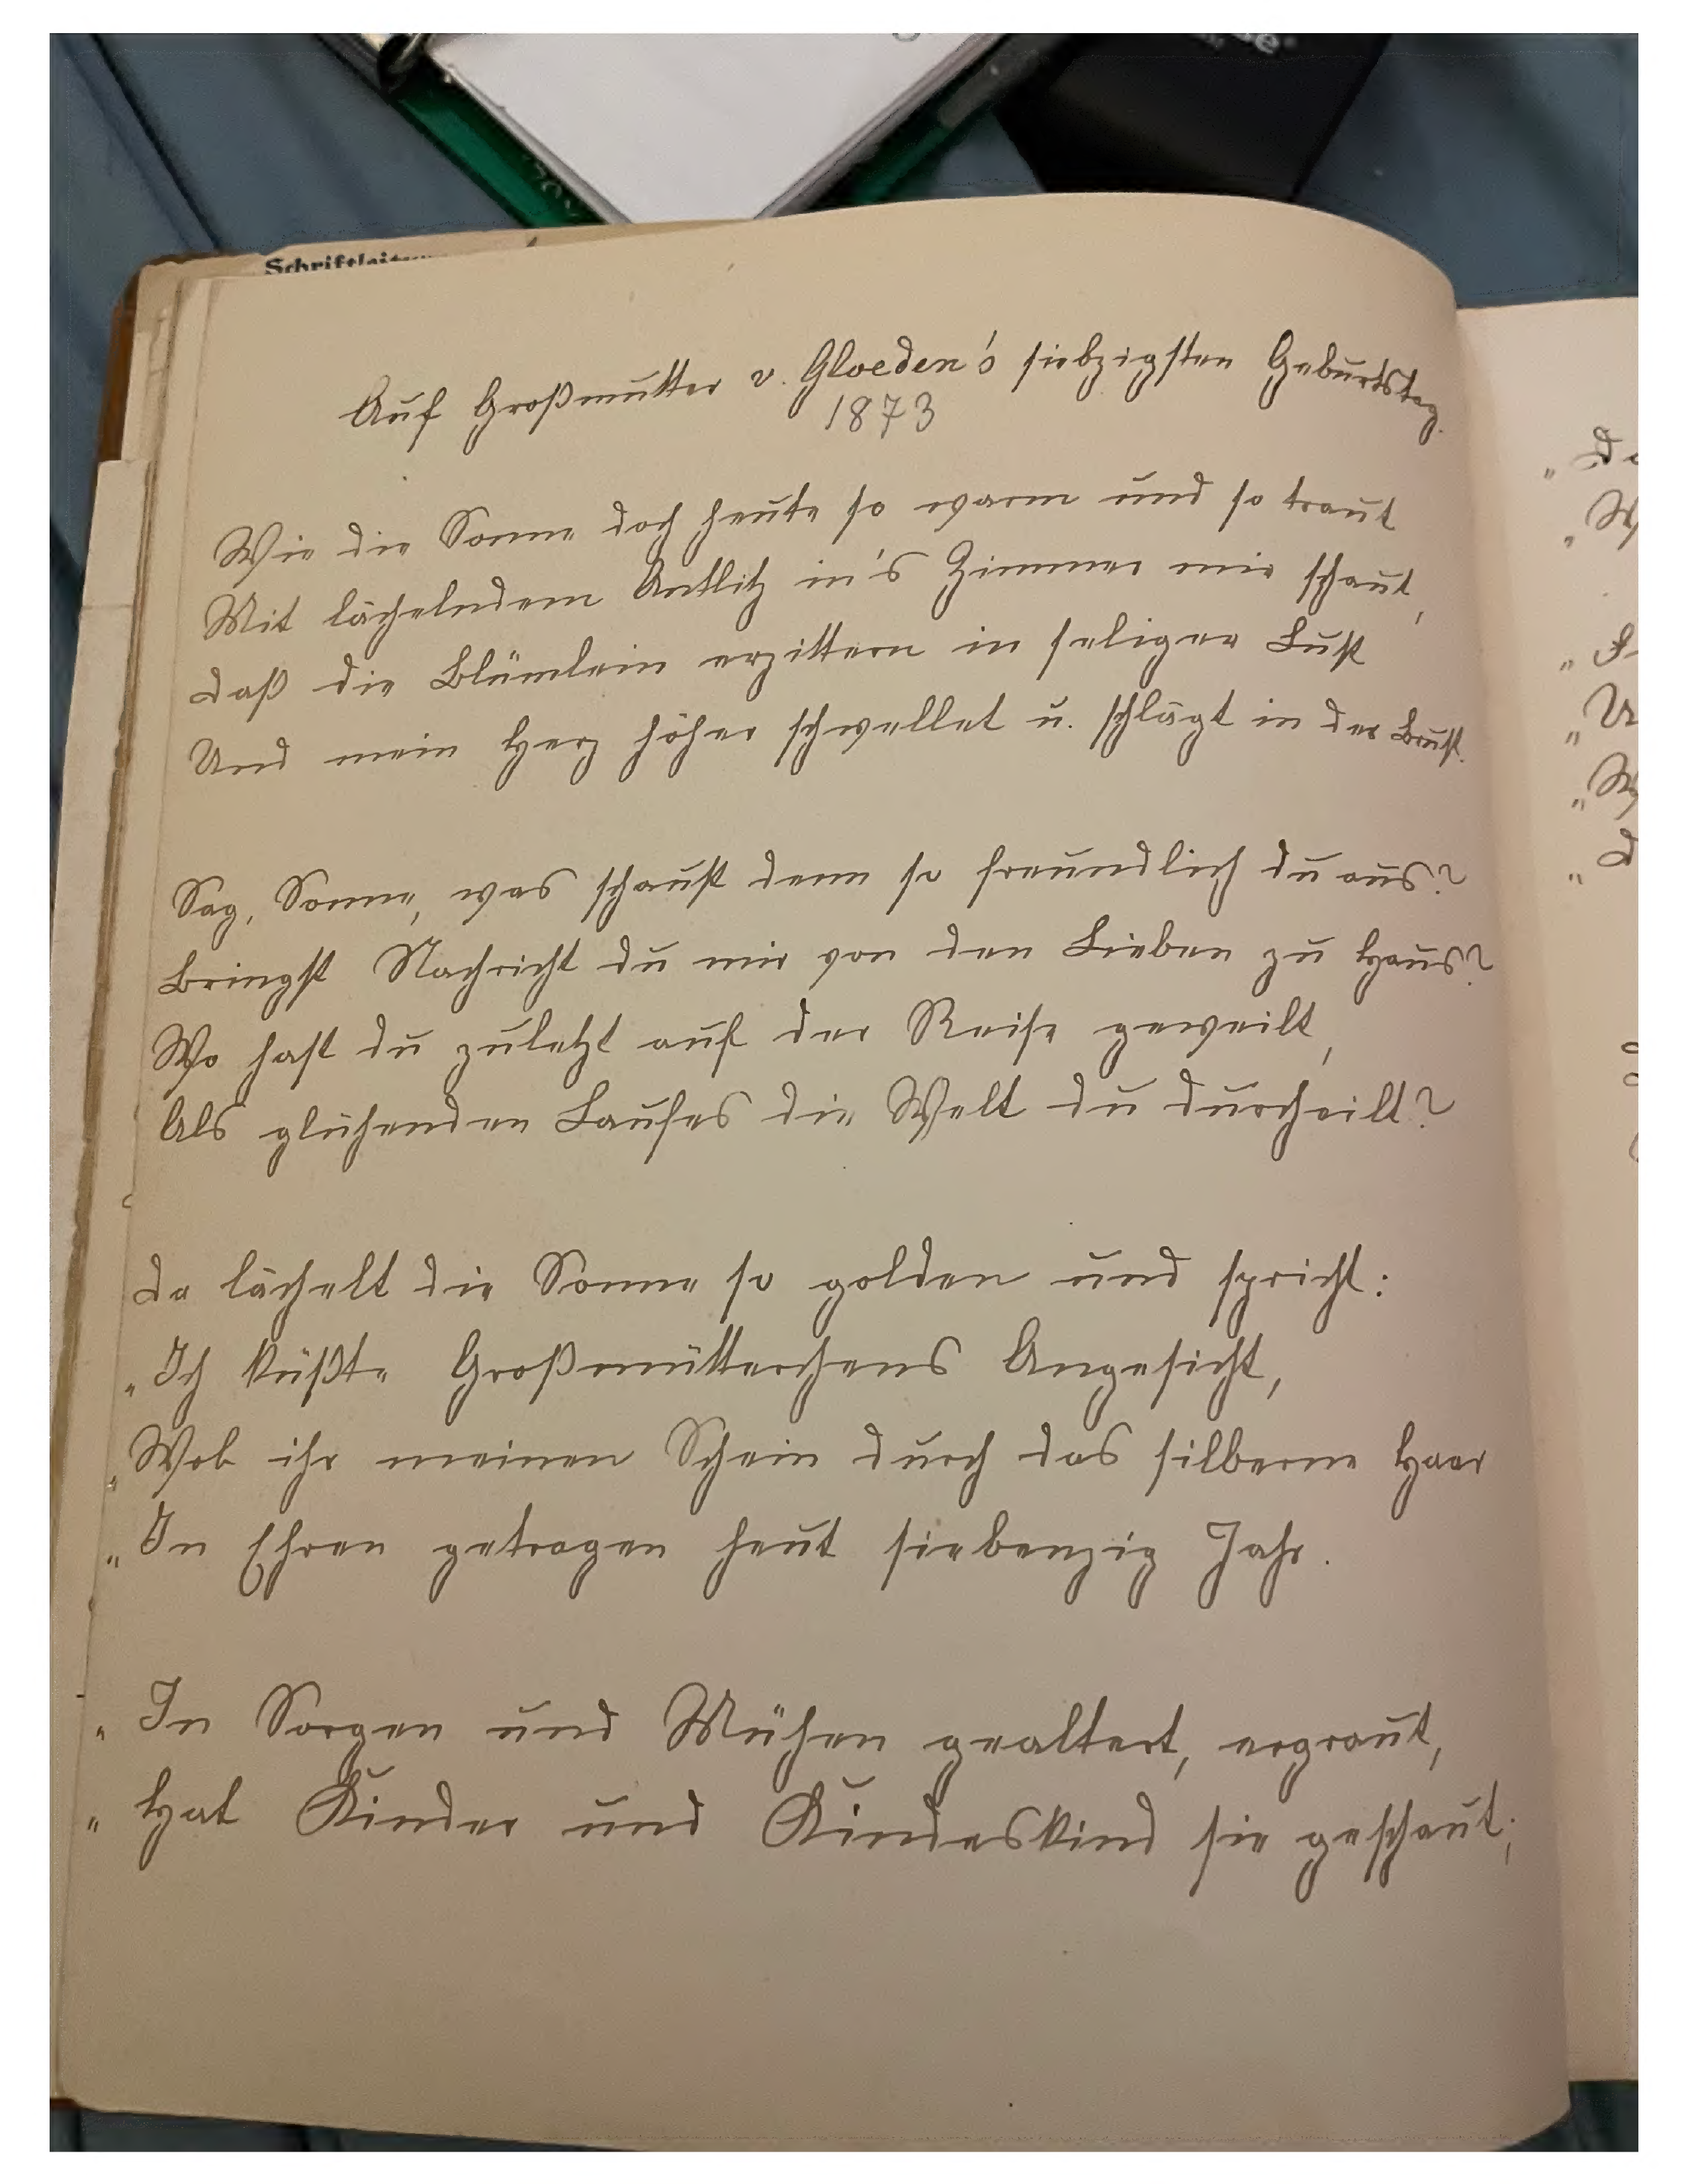 Schriftleitung
Auf Großmutter v. Gloeden's siebzigsten Geburtstag.
1873
Wie die Sonne doch heute so warm und so traut
Mit lächelndem Antlitz in's Zimmer mir schaut,
Daß die Blümlein erzittern in seliger Lust
Und mein Herz höher schwellet u. schlägt in der Brust.
Sag, Sonne, was schaust denn so freundlich du aus?
Bringst Nachricht du mir von den Lieben zu Haus?
Wo hast du zuletzt auf der Reise geweilt,
Als glühenden Laufes die Welt du durcheilt?
Da lächelt die Sonne so golden und spricht:
„Ich küßte Großmütterchens Angesicht,
„Wob ihr meinen Schein durch das silberne Haar
„In Ehren getragen heut siebenzig Jahr.
„In Sorgen und Mühen gealtert, ergraut,
„Hat Kinder und Kindeskind sie geschaut;